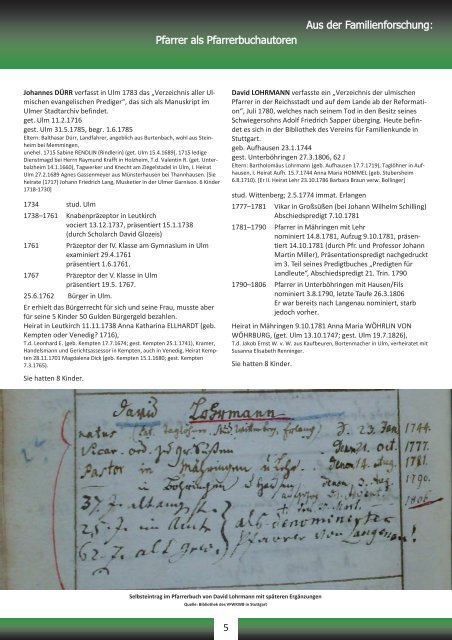 Aus der Familienforschung:
Pfarrer als Pfarrerbuchautoren
Johannes DÜRR verfasst in Ulm 1783 das „Verzeichnis aller Ul-
mischen evangelischen Prediger“, das sich als Manuskript im
Ulmer Stadtarchiv befindet.
get. Ulm 11.2.1716
gest. Ulm 31.5.1785, begr. 1.6.1785
Eltern: Balthasar Dürr, Landfahrer, angeblich aus Burtenbach, wohl aus Stein-
heim bei Memmingen,
unehel. 1715 Sabine RENDLIN (Rindlerin) (get. Ulm 15.4.1689), 1715 ledige
Dienstmagd bei Herrn Raymund Krafft in Holzheim, T.d. Valentin R. (get. Unter-
balzheim 14.1.1660), Tagwerker und Knecht am Ziegelstadel in Ulm, I. Heirat
Ulm 27.2.1689 Agnes Gassenmeyer aus Münsterhausen bei Thannhausen. [Sie
heirate (1717) Johann Friedrich Lang, Musketier in der Ulmer Garnison. 6 Kinder
1718-1730]
1734 stud. Ulm
1738–1761 Knabenpräzeptor in Leutkirch
vociert 13.12.1737, präsentiert 15.1.1738
(durch Scholarch David Glozeis)
1761 Präzeptor der IV. Klasse am Gymnasium in Ulm
examiniert 29.4.1761
präsentiert 1.6.1761.
1767 Präzeptor der V. Klasse in Ulm
präsentiert 19.5. 1767.
25.6.1762 Bürger in Ulm.
Er erhielt das Bürgerrecht für sich und seine Frau, musste aber
für seine 5 Kinder 50 Gulden Bürgergeld bezahlen.
Heirat in Leutkirch 11.11.1738 Anna Katharina ELLHARDT (geb.
Kempten oder Venedig? 1716),
T.d. Leonhard E. (geb. Kempten 17.7.1674; gest. Kempten 25.1.1741), Kramer,
Handelsmann und Gerichtsassessor in Kempten, auch in Venedig, Heirat Kemp-
ten 28.11.1701 Magdalena Dick (geb. Kempten 15.1.1680; gest. Kempten
7.3.1765).
Sie hatten 8 Kinder.
David LOHRMANN verfasste ein „Verzeichnis der ulmischen
Pfarrer in der Reichsstadt und auf dem Lande ab der Reformati-
on“, Juli 1780, welches nach seinem Tod in den Besitz seines
Schwiegersohns Adolf Friedrich Sapper überging. Heute befin-
det es sich in der Bibliothek des Vereins für Familienkunde in
Stuttgart.
geb. Aufhausen 23.1.1744
gest. Unterböhringen 27.3.1806, 62 J
Eltern: Bartholomäus Lohrmann (geb. Aufhausen 17.7.1719), Taglöhner in Auf-
hausen, I. Heirat Aufh. 15.7.1744 Anna Maria HOMMEL (geb. Stubersheim
6.8.1710). [Er II. Heirat Lehr 23.10.1786 Barbara Braun verw. Bollinger]
stud. Wittenberg; 2.5.1774 immat. Erlangen
1777–1781 Vikar in Großsüßen (bei Johann Wilhelm Schilling)
Abschiedspregt 7.10.1781
1781–1790 Pfarrer in Mähringen mit Lehr
nominiert 14.8.1781, Aufzug 9.10.1781, präsen-
tiert 14.10.1781 (durch Pfr. und Professor Johann
Martin Miller), Präsentationspredigt nachgedruckt
im 3. Teil seines Predigtbuches „Predigten für
Landleute“, Abschiedspredigt 21. Trin. 1790
1790–1806 Pfarrer in Unterböhringen mit Hausen/Fils
nominiert 3.8.1790, letzte Taufe 26.3.1806
Er war bereits nach Langenau nominiert, starb
jedoch vorher.
Heirat in Mähringen 9.10.1781 Anna Maria WÖHRLIN VON
WÖHRBURG, (get. Ulm 13.10.1747; gest. Ulm 19.7.1826),
T.d. Jakob Ernst W. v. W. aus Kaufbeuren, Bortenmacher in Ulm, verheiratet mit
Susanna Elisabeth Renninger.
Sie hatten 8 Kinder.
David Lohrmann
natus d. 23. Jan. 1744.
Vicar. ord. Denom. 21. oct. 1777.
Pastor in Mähringen u. Lehr. denom. 14. Aug. 1781.
in Böhringen u. Hausen, denom. 3. Aug. 1790.
1806
37. J. alt
25. J. im Amt als denominirter
62. J. alt Pfarrer von Langenau!
Selbsteintrag im Pfarrerbuch von David Lohrmann mit späteren Ergänzungen
Quelle: Bibliothek des VFWKWB in Stuttgart
5